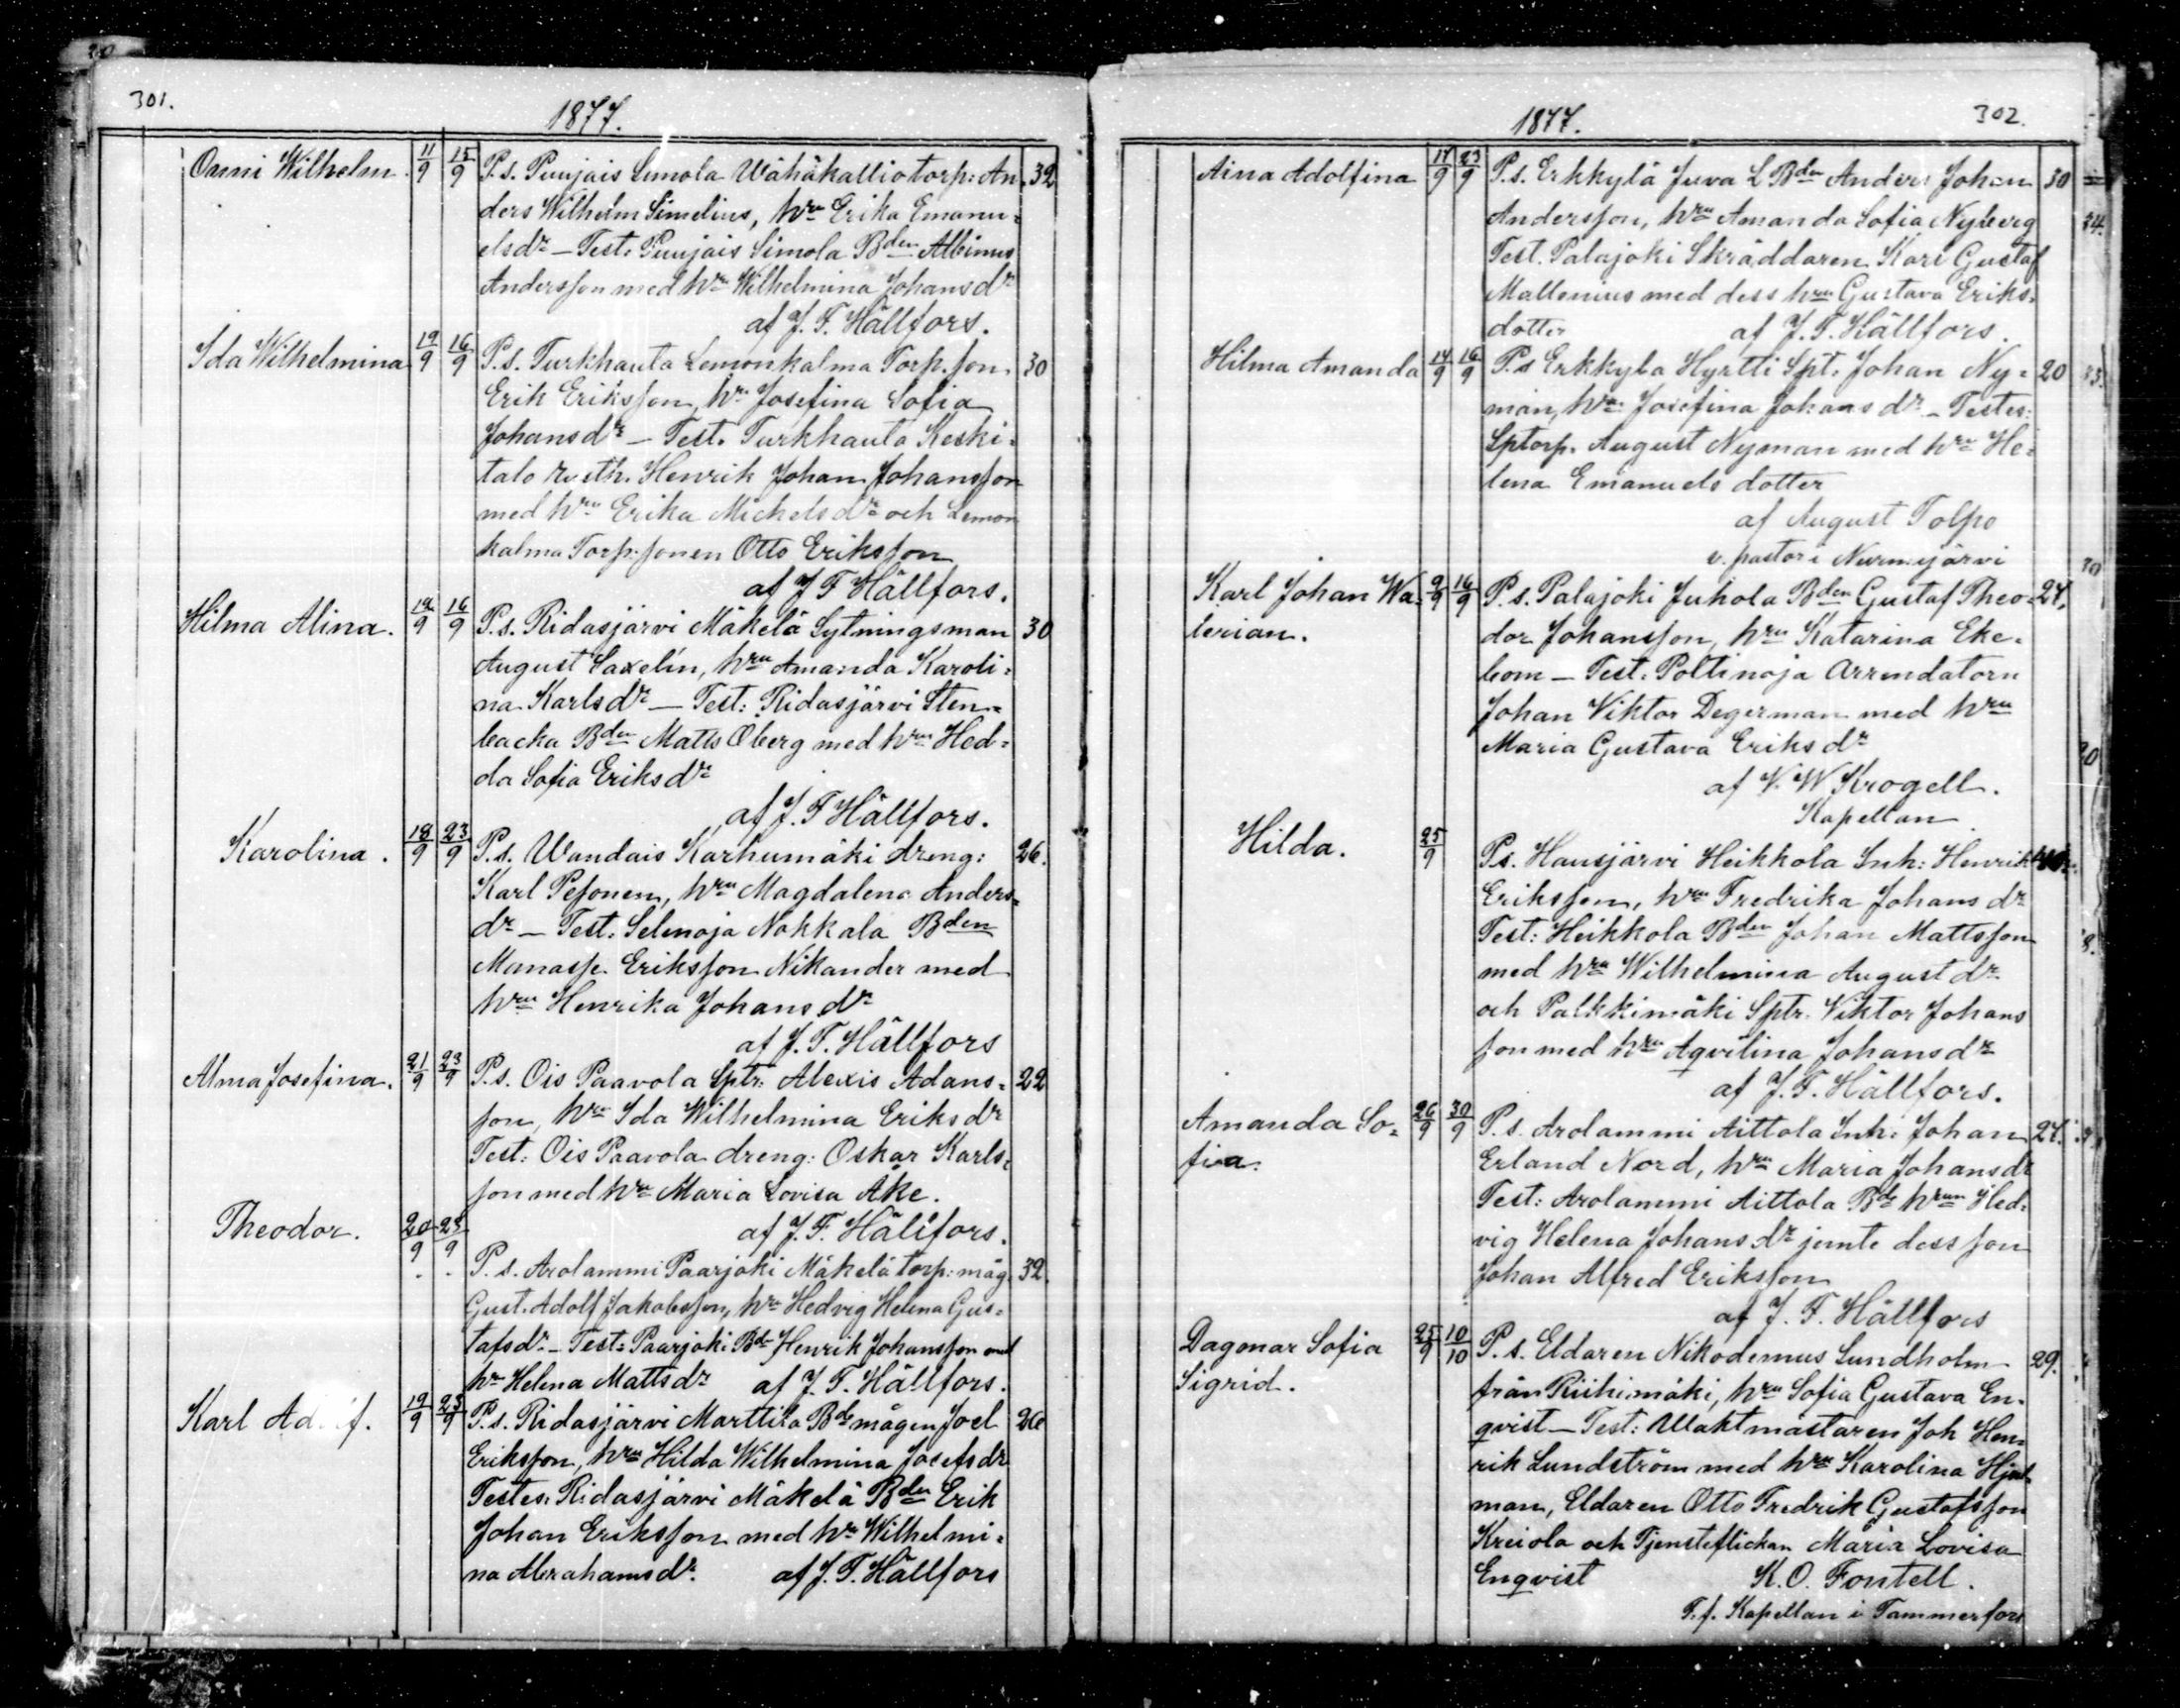 301.
1877.
Onni Wilhelm. 11/9 15/9 P. s. Puujais Simola Wähäkallio torp: An 32
ders Wilhelm Simelius, hru Erika Emanu=
elsdr — Test: Puujais Simola Bden Albinus
Andersson med hru Wilhelmina Johansdr
af J. F. Hällfors.
Ida Wilhelmina 12/9 16/9 P. s. Turkhauta Lemonkalma Torp. son 30
Erik Eriksson, hru Josefina Sofia
Johansdr — Test. Turkhauta Keski=
talo Henrik Johan Johansson
med hru Erika Michelsdr och Lemon
kalma Torp. sonen Otto Eriksson
af J F Hällfors.
Hilma Alina. 12/9 16/9 P. s. Ridasjärvi Mäkelä Sytningsman 30
August Saxelin, hru Amanda Karoli=
na Karlsdr — Test: Ridasjärvi Sten=
backa Bden Matts Öberg med hru Hed=
da Sofia Eriksdr
af J. F Hällfors.
Karolina. 18/9 23/9 P. s. Wandais Karhumäki dreng: 26.
Karl Pesonen, hru Magdalena Anders=
dr — Test: Selenoja Nokkala Bden
Manasse Eriksson Nikander med
hru Henrika Johansdr
af J. F. Hällfors
Alma Josefina. 21/9 23/9 P. s. Ois Paavola Sptr: Alexis Adams= 22
son, hru Ida Wilhelmina Eriksdr
Test: Ois Paavola dreng: Oskar Karls=
son med hru Maria Lovisa Åke.
af J. F. Hällfors.
Theodor. 20/9 23/9
P. s. Arolammi Paarjoki Mäkelä torp: måg 32.
Gust. Adolf Jakobsson, hru Hedvig Helena Gus=
tafsdr — Test: Paarjoki Bdn Henrik Johansson med
hru Helena Mattsdr af J. F. Hällfors.
Karl Ad f. 19/9 23/9 P. s. Ridasjärvi Marttila Bde mågen Joel 26
Eriksson, hru Hilda Wilhelmina Josefsdr
Testes: Ridasjärvi Mäkelä Bden Erik
Johan Eriksson med hru Wilhelmi=
na Abrahamsdr. af J. F. Hällfors
1877. 302.
Aina Adolfina 17/9 23/9 P. s. Erkkylä Juva L Bden Anders Johan 30
Andersson, hru Amanda Sofia Nyberg 34.
Test. Palajoki Skräddaren Karl Gustaf
Mallenius med dess hru Gustava Eriks=
dotter af J. F. Hällfors.
Hilma Amanda 14/9 16/9 P. s Erkkylä Hyrtti Spt: Johan Ny= 20
man, hru Josefina Johansdr — Testes:
Sptorp. August Nyman med hru He=
lena Emanuels dotter
af August Tolpo
v. pastor i Nurmijärvi
Karl Johan Wa= 9/9 16/9 P. s. Palajoki Juhola Bden Gustaf Theo= 24,
lerian. dor Johansson, hru Katarina Eke=
bom — Test: Poltinoja Arrendatorn
Johan Viktor Degerman med hru
Maria Gustava Eriksdr
af V. W Krogell.
Kapellan
Hilda. 25/9 P. s. Hausjärvi Heikkola Inh: Henrik
Eriksson, hru Fredrika Johansdr
Test: Heikkola Bden Johan Mattsson
med hru Wilhelmina Augustdr.
och Palkkimäki Sptr. Viktor Johans
son med hru Aqvilina Johansdr
af J. F. Hällfors.
Amanda So= 26/9 30/9 P. s. Arolammi Aittola Inh: Johan 24.
fia. Erland Nord, hru Maria Johansdr
Test: Arolammi Aittola Bde hrun Hed=
vig Helena Johansdr jemte dess son
Johan Alfred Eriksson
af J. F. Hällfors
Dagmar Sofia 25/9 10/10 P. s. Eldaren Nikodemus Sundholm 29.
Sigrid. från Riihimäki, hru Sofia Gustava En=
qvist — Test: Waktmästaren Joh Hen=
rik Lundström med hru Karolina
man, Eldaren Otto Fredrik Gustafsson
Kreiola och Tjensteflickan Maria Lovisa
Enqvist K. O. Fontell.
T. f. Kapellan i Tammerfors